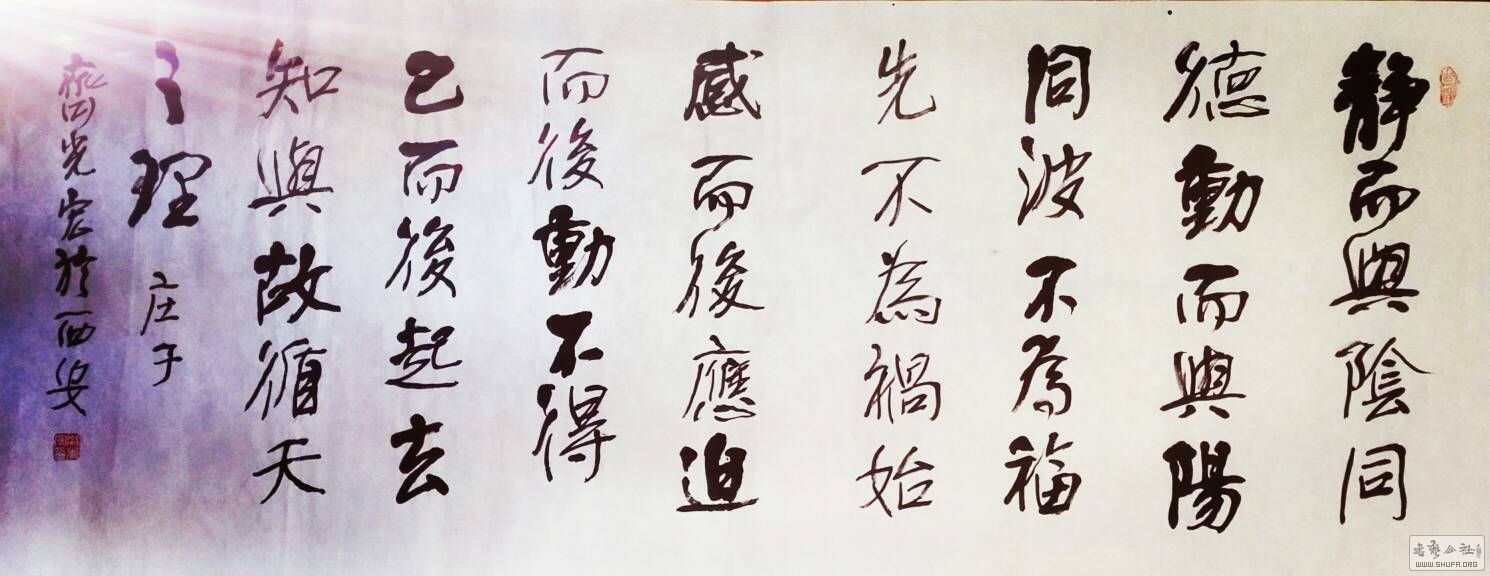 静而與陰同
德動而與陽
同波不為福
先不為禍始
感而後應迫
而後動不得
已而後起去
知與故循天
之理 庄子
光宏於西安
WWW.SHUFA.ORG